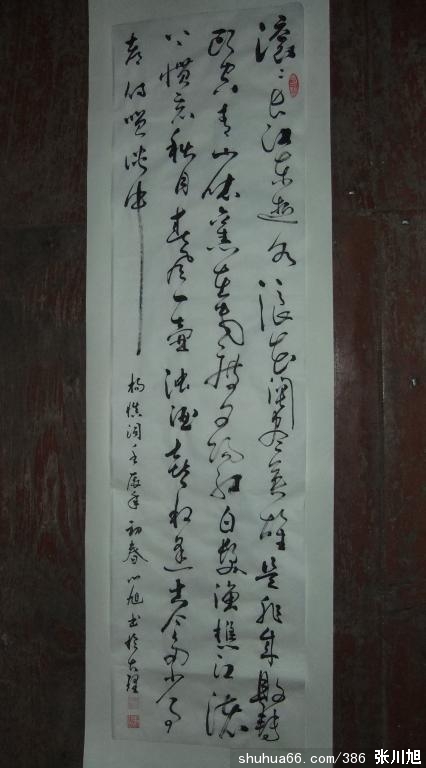 滚〻长江东逝水浪花淘尽英雄是非成败转
头空青山依旧在几度夕阳红白发渔樵江渚
上惯看秋月春风一壶浊酒喜相逢古今多少事
都付笑谈中
杨慎词壬辰年初春川旭书于大理
shuhua66.com/386 张川旭